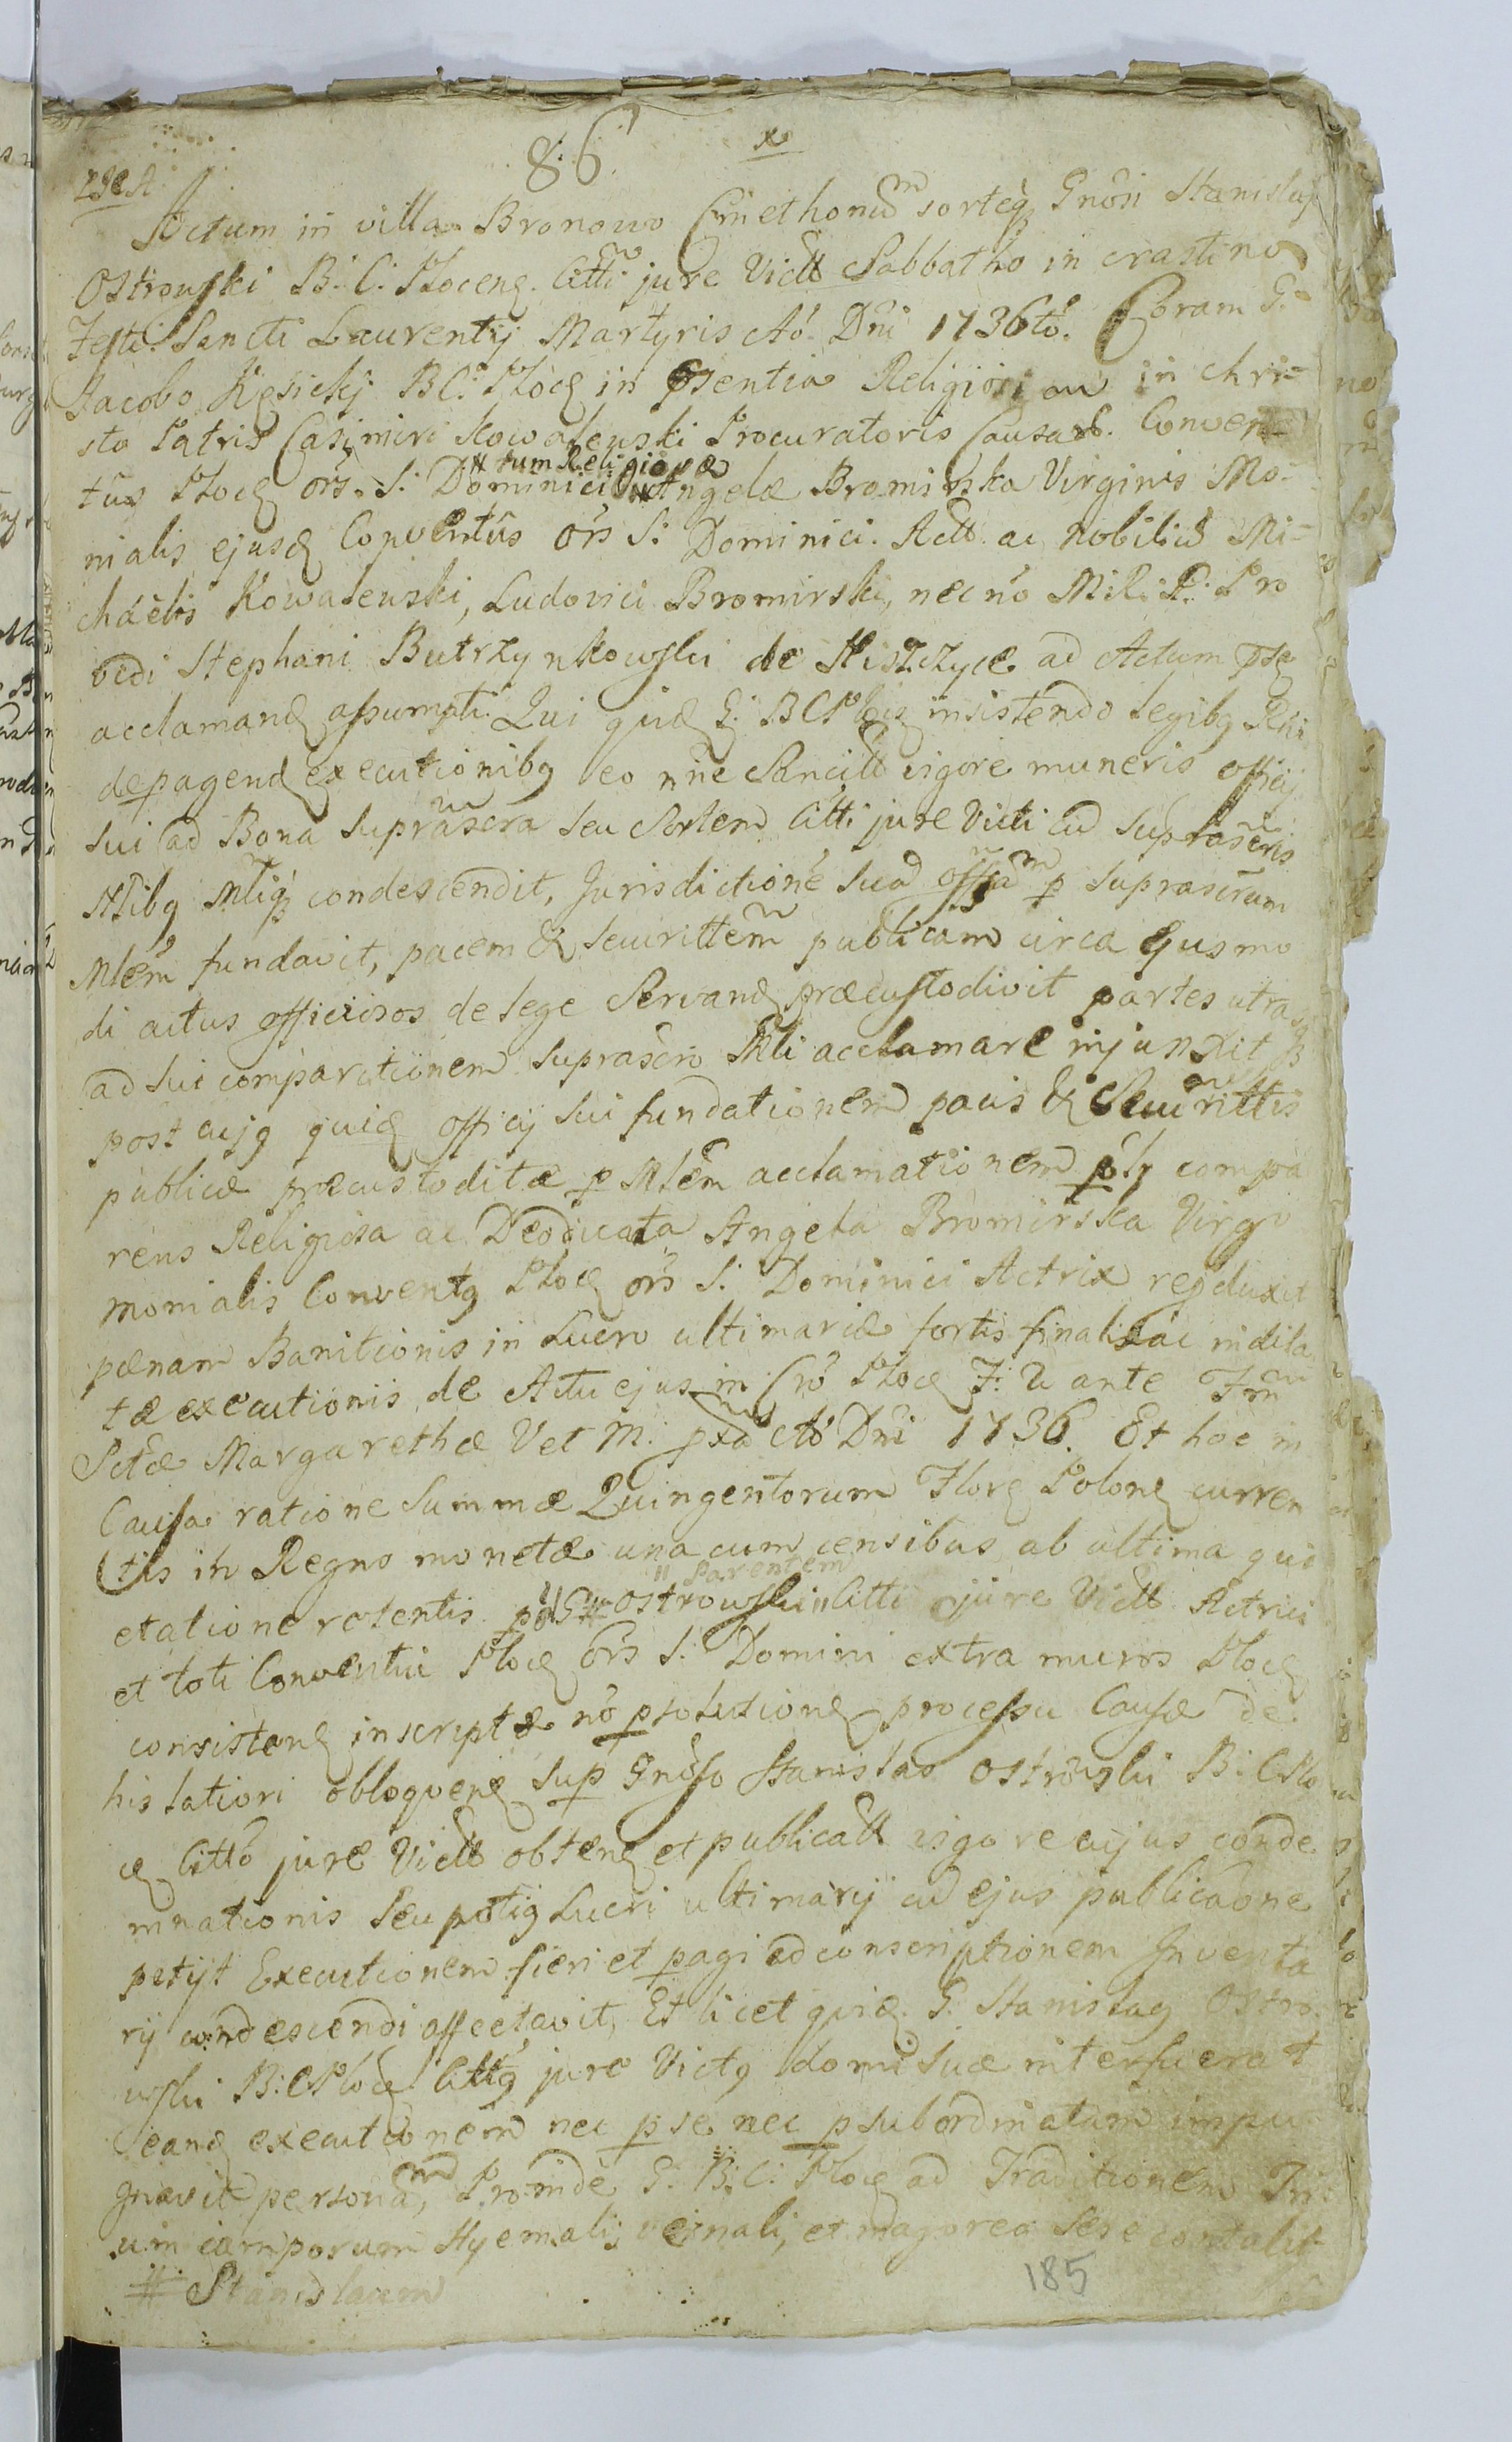 86 x
Actum in villa Bronowo Cmethonum sorteq Gnosi Stanislai
Ostrowski B. C. Plocens. Citti jure Victt Sabbatho in crastino
Festi Sancti Laurentij Martyris Ao. Dni 1736to. Coram G.
Jacobo Kęsickj B C. Ploce in psentia Religiosi ac in chri=
sto Patris Casimiri Kowalewski Procuratoris Causar. Conven=
# tum Religiosæ
tus Ploce ors. S. Dominici # Angelæ Bromirska Virginis Mo-
nialis ejusd Conventûs Ors S: Dominici. Actt. ac Nobiliũ Mi=
chaëlis Kowalewski, Ludovici Bromirski, nec nõ M:R:R: Pro
vidi Stephani Butrzynkowski de Miszzyce ad Actum pse
acclamand assumpti. Qui quid G: B C Plocs insistendo legibq Rni
de pagend executionibq eo nne Sancitt vigore muneris officij
sui ad Bona suprascra seu Sortem Citti jure Victi cũ suprascris
Nlibq Mliq condescendit, Jurisdictionē suã offſam p suprascrum
Mlem fundavit, pacem & securittem publicam circa ejusmo
di actus officiosos de lege Servand præcustodivit partes utrasq
ad sui comparitionem suprascro Mli acclamare injunxit
post cujq quid officij sui fundationem pacis & Securittis
publicæ præcustoditæ p Mlem acclamationem plr compa
rens Religiosa ac Deodicata Angela Bromirska Virgo
monialis Conventq Ploce ors S: Dominici Actrix rejduxit
pænam Banitionis in Lucro ultimariæ fortis finalis ac indila
tæ executionis, de Actu ejus in Cro Ploce F: 2 ante Fm
Sctæ Margarethæ V et M. pxa Ao Dni 1736. Et hoc in
Causa ratione Summæ Quingentorum Flore Polone curren
tis in Regno monetæ una cum censibus ab ultima qui
" Parentem
etatione retentis p" G # Ostrowski " Citti jure Victt Actrici
et toti Conventui Ploce Ors S: Domini extra muros Ploce
consistend inscriptæ nõ psolutione processu Causæ de
his latiori obloquene sup Gnoso Stanislao Ostrowski B: C Plo
ce Citto jure Victt obtene et publicatt vigore cujus conde
mnationis seu potiq Lucri ultimarij cũ ejus publicaone
petijt Executionem fieri et pagi ad conscriptionem Inventa
rij condescendi affectavit, Et licet quid G. Stanislaq Ostro
wski B: C Ploce Cittq jure Victq domi suæ interfuerat
eand executionem nec p se nec p subordinatam impu
gnavit personam, Proinde G. B: C: Ploce ad Traditionem Tri
um camporum Hyemali, vernali, et ugorea sese contulit
# Stanislaum
185